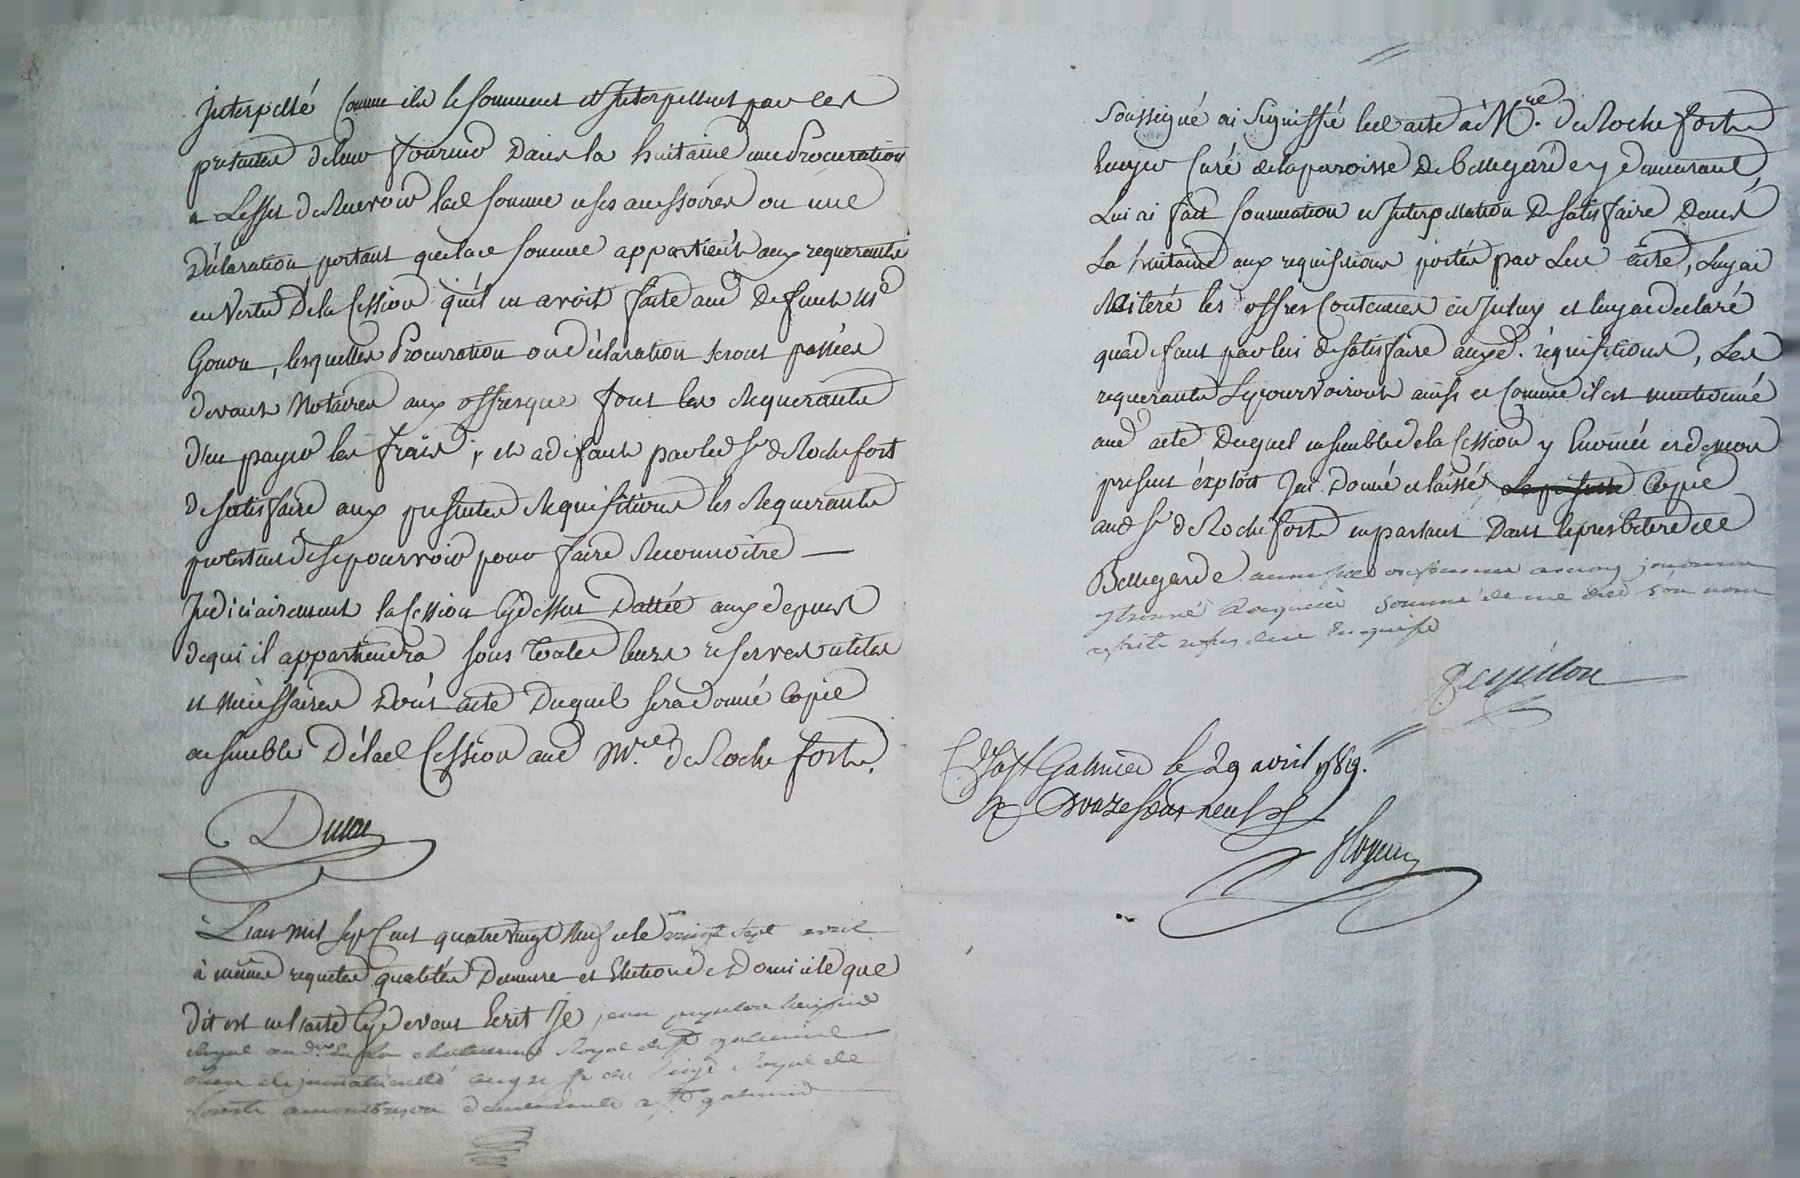 Interpellé comme ils le somment et Interpellent par les
presentes de leur fournir dans la huitaine une Procuration
a L'effet de Recevoir lad somme et ses accessoires ou une
Déclaration portant que lade somme appartient aux requerants
en Vertu De la Cession qu'il en avoit faite aud Defunt Mr
Gonon, lesquelles Procuration ou déclaration seront passées
devant Notaires aux offres que font les Requerants
d'en payer les frais, et a defaut par led Sr de Rochefort
de satisfaire aux presentes Requisitions les Requerants
protestent de se pourvoir pour faire Reconnoitre
Judiciairement la Cession cydessus Dattée aux depens
de qui il appartiendra sous toutes leurs reserves utiles
et necessaires Dont acte Duquel sera donné Copie
ensemble De lad Cession aud Mre de Rochefort.
Duvan
L'an mil sept cent quatre vingt neuf et le vingt sept avril
à mêmes requetes qualités Demeure et Election de Domicile que
dit est en l'acte cy devant Ecrit Je jean peysselon huissier
Royal Royal de St galmier
Royal de
a montbrison demeurant a St galmier
Soussigné ai signiffié led acte à Mre. de Rochefort
Ecuyer Curé de la paroisse De Bellegarde y demeurant,
Lui ai fait sommation et Interpellation De satisfaire Dans
La huitaine aux requisitions portées par led acte, Luy ai
Reiteré les offres contenues en Iceluy et luy ai declaré
qu'a defaut par lui de satisfaire auxd. réquisitions, Les
requerants se pourvoiront ainsi et comme il est mentionné
aud acte Duquel ensemble de la Cession y énoncée et de mon
present éxploit Jai Donné et laissé Copie
aud Sr de Rochefort en parlant Dans le presbitere de
Bellegarde
sommé de me dire son nom
refus de ce Enquise
Peysselon
Ct a St Galmier le 29 avril 1789.
R douze sols neuf d